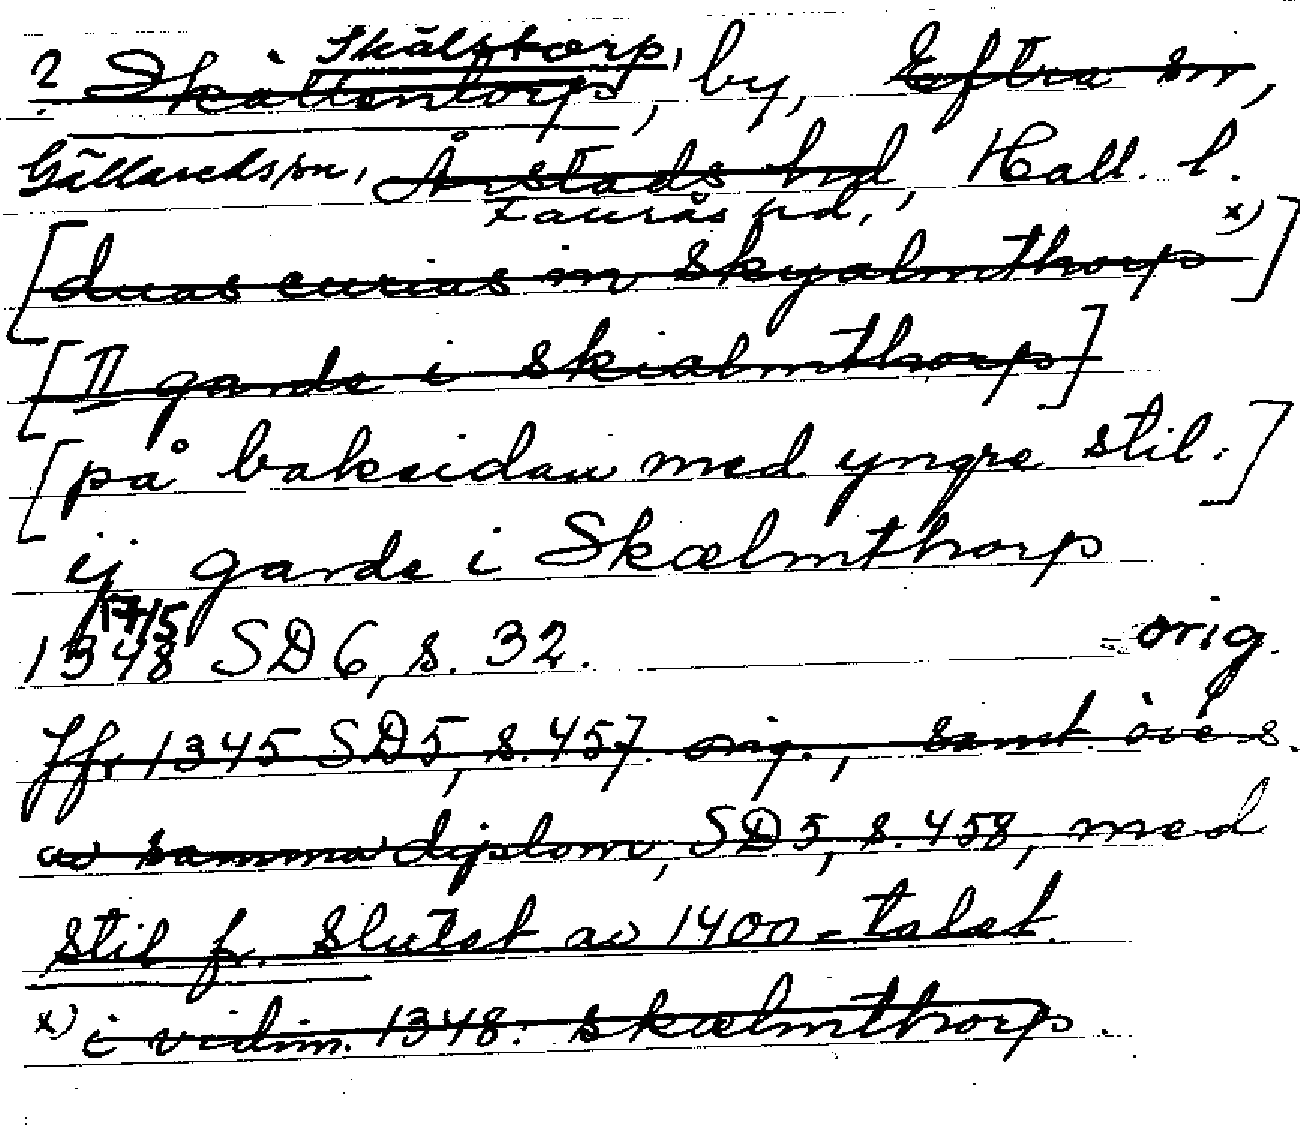 Skälstorp,
? Skällentorp, by, Eftra sn,
Gällareds sn, Årstads hd, Hall. l.
Faurås hd,
[duas curias in Skyalmthorp x)]
[II garde i Skialmthorp]
[på baksidan med yngre stil:]
ij garde i Skælmthorp
1745
1348 SD 6, s. 32. orig.
Jfr 1345 SD5, s. 457. orig., samt övers.
av samma diplom, SD5, s. 458, med
stil fr. slutet av 1400-talet.
x) i vidim. 1348: skælmthorp.